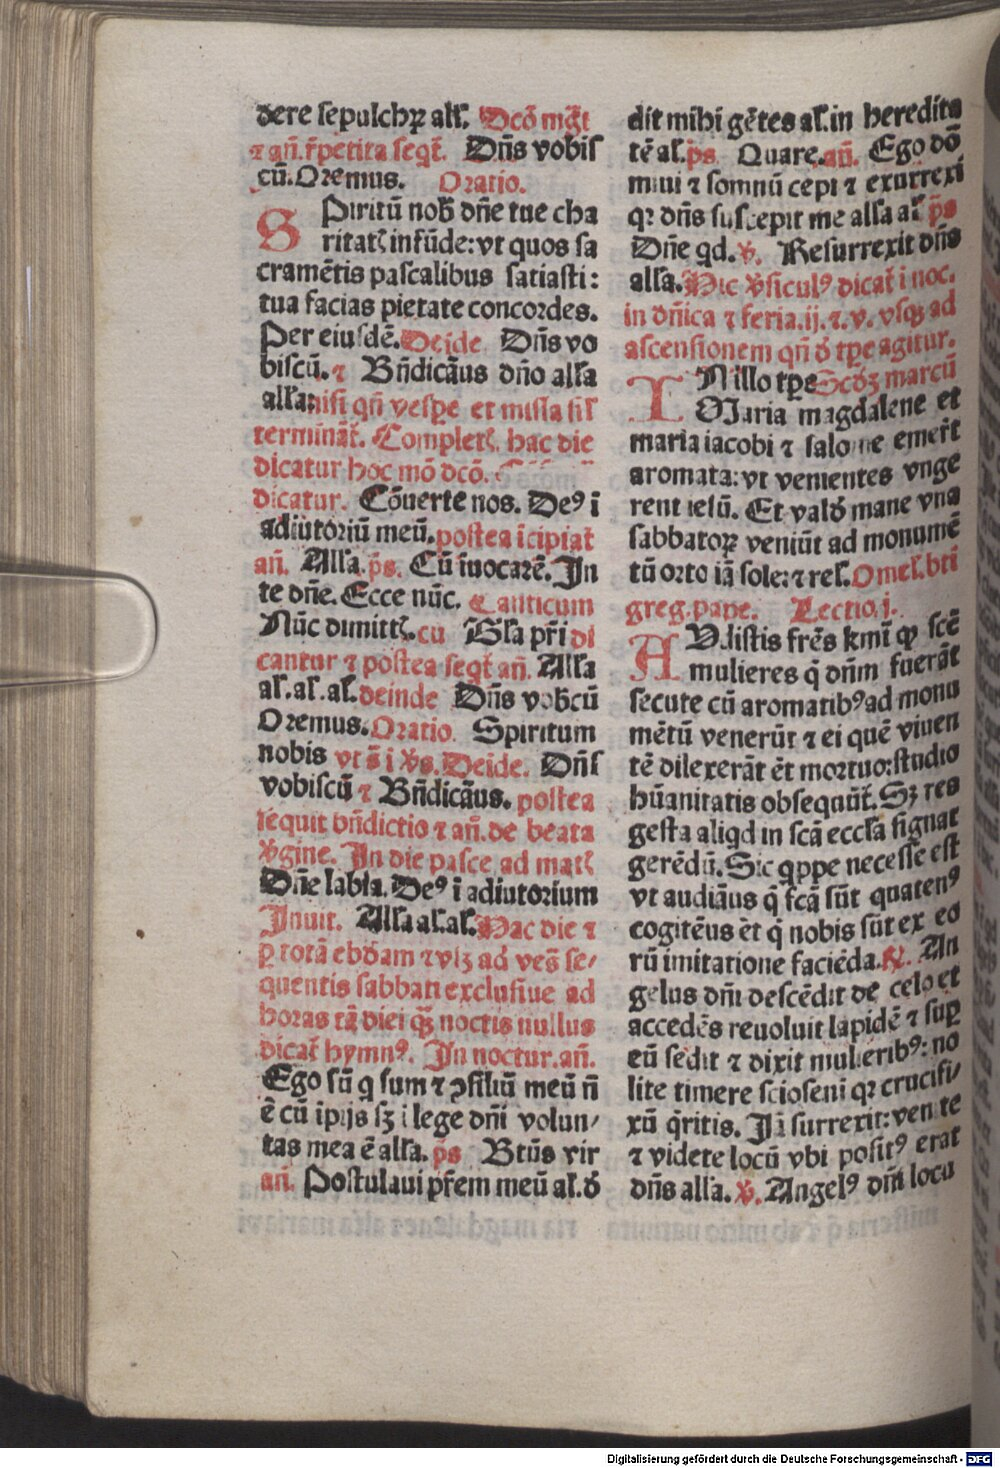 dere sepulchꝝ all'. Dcō mg̃t
⁊ añ. r̃petita seqt̃. Dñs vobis
cũ. Oremus. Oratio.
SPiritũ nob̃ dñe tue cha
ritatꝭ infũde: vt quos sa
cramẽtis pascalibus satiasti:
tua facias pietate concordes.
Per eiusdẽ. Deide Dñs vo
biscũ. ⁊ Bñdicãus dño alla
alla: nisi qñ vespe et missa sil'
terminãt̃. Completꝭ. hac die
dicatur hoc mõ dcõ.
dicatur. Cõuerte nos. De⁹ ĩ
adiutoriũ meũ. postea ĩcipiat̃
añ. Alla. p̃s. Cũ ĩuocarẽ. In
te dñe. Ecce nũc. Canticum
Nũc dimittꝭ. cũ Gl'a pr̃i di
cantur ⁊ postea seqt̃ añ. Alla
al'. al'. al'. deinde Dñs vobcũ
Oremus. Oratio. Spiritum
nobis vt s̃ i v̓s. Deide. Dñs
vobiscũ ⁊ Bñdicãus. postea
sequit̃ bñdictio ⁊ añ. de beata
v̓gine. In die pasce ad matꝭ
Dñe labia. De⁹ ĩ adiutorium
Inuit. Alla al'. al'. Hac die ⁊
ꝑ totã ebdãm ⁊ vlꝫ ad ves̃ se⸗
quentis sabbati exclusiue ad
horas tã diei q̃ꝫ noctis nullus
dicat̃ hymn⁹. In noctur. añ.
Ego sũ q sum ⁊ ꝯsiliũ meũ ñ
ẽ cũ ipijs sꝫ i lege dñi volun⸗
tas mea ẽ alla. p̃s Btũs vir
añ. Postulaui pr̃em meũ al'. d̓
dit mihi gẽtes al'. in heredita
tẽ al'. p̃s. Quare. añ. Ego do
miui ⁊ somnũ cepi ⁊ exurrexi
qꝛ dñs suscepit me alla al' p̃s
Dñe qd. v̓. Resurrexit dñs
alla. Hic v̓sicul⁹ dicat̃ i noc.
in dñica ⁊ feria. ij. ⁊. v. vsqꝫ ad
ascensionem qñ d̓ tꝑe agitur.
IN illo tꝑe Scd̓ꝫ marcũ
Maria magdalene et
maria iacobi ⁊ salome emer̃t
aromata: vt venientes vnge
rent iesũ. Et vald̓ mane vna
sabbatoꝝ veniũt ad monumẽ
tũ orto iã sole: ⁊ rel'. Omel'. bti
greg. pape. Lectio. j.
AVdistis fr̃es kmĩ ꝙ scẽ
mulieres q̃ dñm fuerãt
secute cũ aromatib⁹ ad monu
mẽtũ venerũt ⁊ ei quẽ viuen
tẽ dilexerãt ẽt mortuo: studio
hũanitatis obsequũt̃. Sꝫ res
gesta aliqd in scã eccl'a signat
gerẽdũ. Sic qppe necesse est
vt audiãus q̃ fcã sũt quaten⁹
cogitẽus ẽt q̃ nobis sũt ex eo
rũ imitatione faciẽda. R̓. An
gelus dñi descẽdit de celo et
accedẽs reuoluit lapidẽ ⁊ suꝑ
eũ sedit ⁊ dixit mulierib⁹: no
lite timere scio eni qꝛ crucifi⸗
xũ q̃ritis. Iã surrexit: venite
⁊ videte locũ vbi posit⁹ erat
dñs alla. v̓. Angel⁹ dñi locu